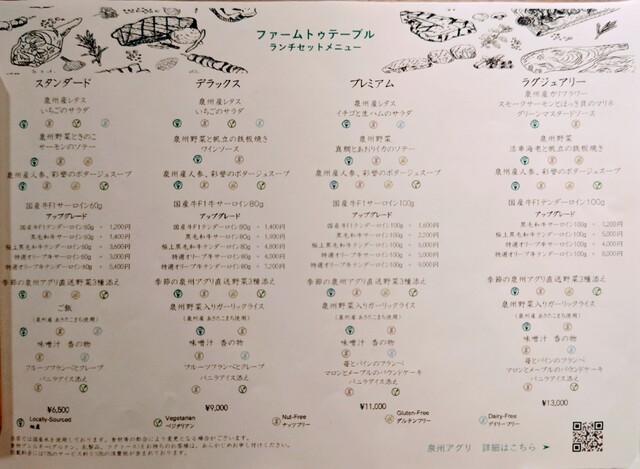 ファームトゥテーブル
ランチセットメニュー
スタンダード
泉州産レタス
いちごのサラダ
泉州野菜ときのこ
サーモンのソテー
泉州産人参、彩誉のポタージュスープ
国産牛F1サーロイン60g
アップグレード
国産牛F1テンダーロイン60g + 1,200円
黒毛和牛サーロイン60g + 1,400円
極上黒毛和牛テンダーロイン60g + 3,600円
特選オリーブ牛サーロイン60g + 3,000円
特選オリーブ牛テンダーロイン60g + 5,400円
季節の泉州アグリ直送野菜3種添え
ご飯
(泉州産 あきたこまち使用)
味噌汁 香の物
フルーツフランベとクレープ
バニラアイス添え
¥6,500
デラックス
泉州産レタス
いちごのサラダ
泉州野菜と帆立の鉄板焼き
ワインソース
泉州産人参、彩誉のポタージュスープ
国産牛F1サーロイン80g
アップグレード
国産牛F1テンダーロイン80g + 1,400円
黒毛和牛サーロイン80g + 1,800円
極上黒毛和牛テンダーロイン80g
特選オリーブ牛サーロイン80g + 4,000円
特選オリーブ牛テンダーロイン80g + 7,200円
季節の泉州アグリ直送野菜3種添え
泉州野菜入りガーリックライス
(泉州産 あきたこまち使用)
味噌汁 香の物
フルーツフランベとクレープ
バニラアイス添え
¥9,000
プレミアム
泉州産レタス
イチゴと生ハムのサラダ
泉州野菜
真鯛とあおりイカのソテー
泉州産人参、彩誉のポタージュスープ
国産牛F1サーロイン100g
アップグレード
国産牛F1テンダーロイン100g + 1,600円
黒毛和牛サーロイン100g + 2,200円
極上黒毛和牛テンダーロイン100g
特選オリーブ牛サーロイン100g
特選オリーブ牛テンダーロイン100g + 9,000円
季節の泉州アグリ直送野菜3種添え
泉州野菜入りガーリックライス
(泉州産 あきたこまち使用)
味噌汁 香の物
苺とパインのフランベ
マロンとメープルのパウンドケーキ
バニラアイス添え
¥11,000
ラグジュアリー
泉州産カリフラワー
スモークサーモンとほっき貝のマリネ
グリーンマスタードソース
泉州野菜
活車海老と帆立の鉄板焼き
泉州産人参、彩誉のポタージュスープ
国産牛F1テンダーロイン100g
アップグレード
黒毛和牛サーロイン100g + 1,200円
極上黒毛和牛テンダーロイン100g
特選オリーブ牛サーロイン100g + 4,000円
特選オリーブ牛テンダーロイン100g + 8,000円
季節の泉州アグリ直送野菜3種添え
泉州野菜入りガーリックライス
(泉州産 あきたこまち使用)
味噌汁 香の物
苺とパインのフランベ
マロンとメープルのパウンドケーキ
バニラアイス添え
¥13,000
Locally-Sourced
地産
Vegetarian
ベジタリアン
Nut-Free
ナッツフリー
Gluten-Free
グルテンフリー
Dairy-Free
デイリーフリー
当店では国産米を使用しております。食材等の都合により変更となる場合がございます。
泉州アグリ 詳細はこちら